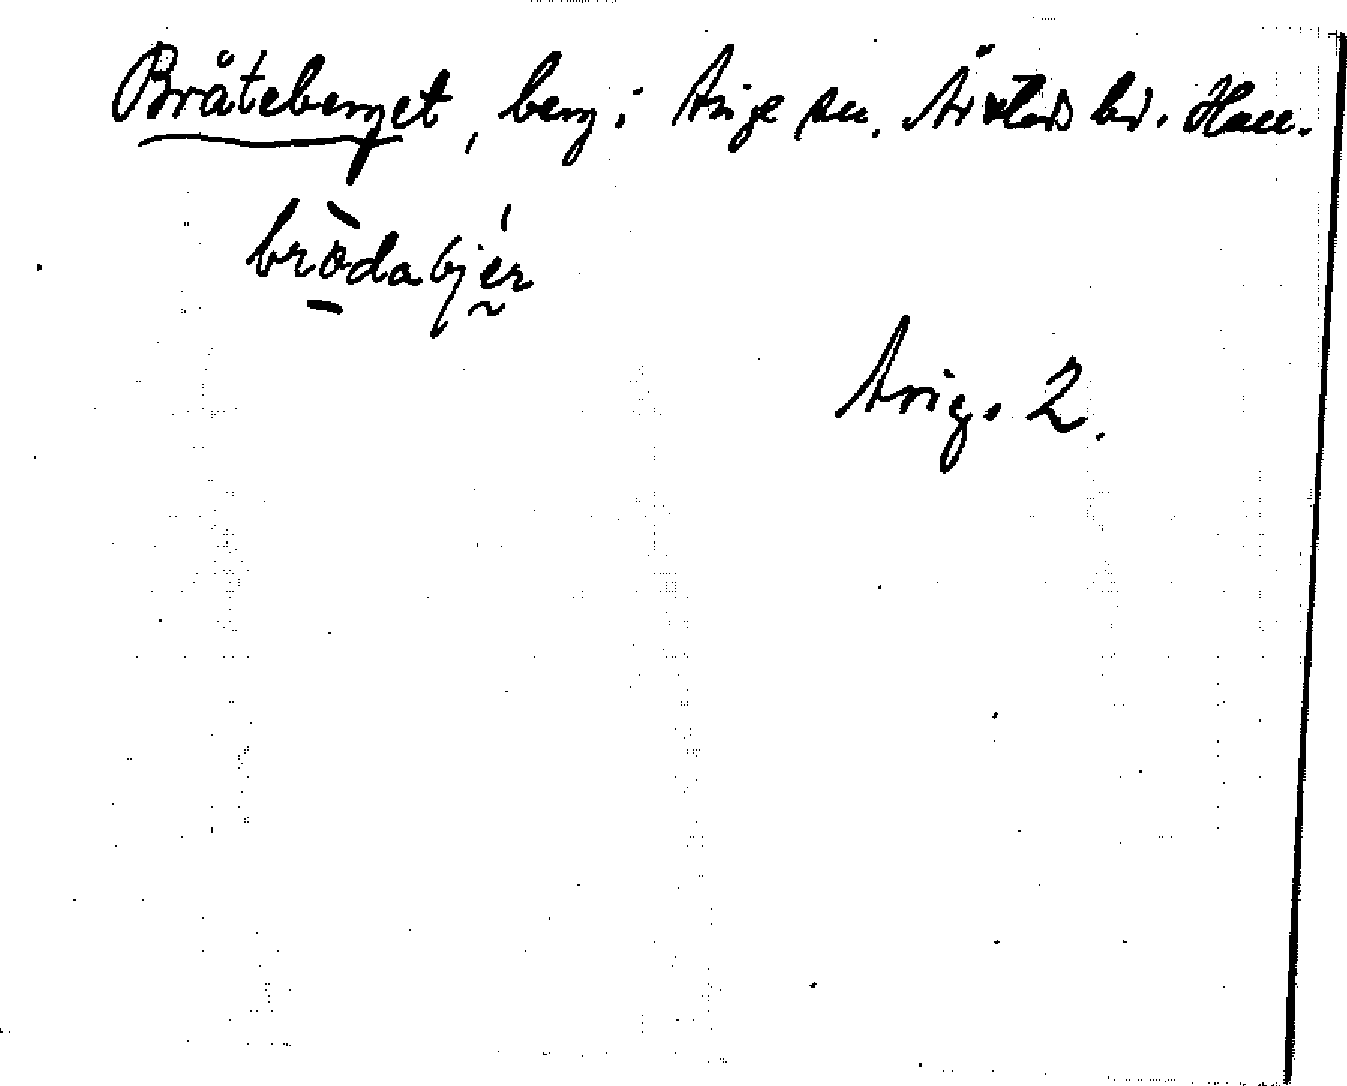 Bråteberget, berg i Asige sn. Årstads hd. Hall.
bròdabjér
Asig. 2.